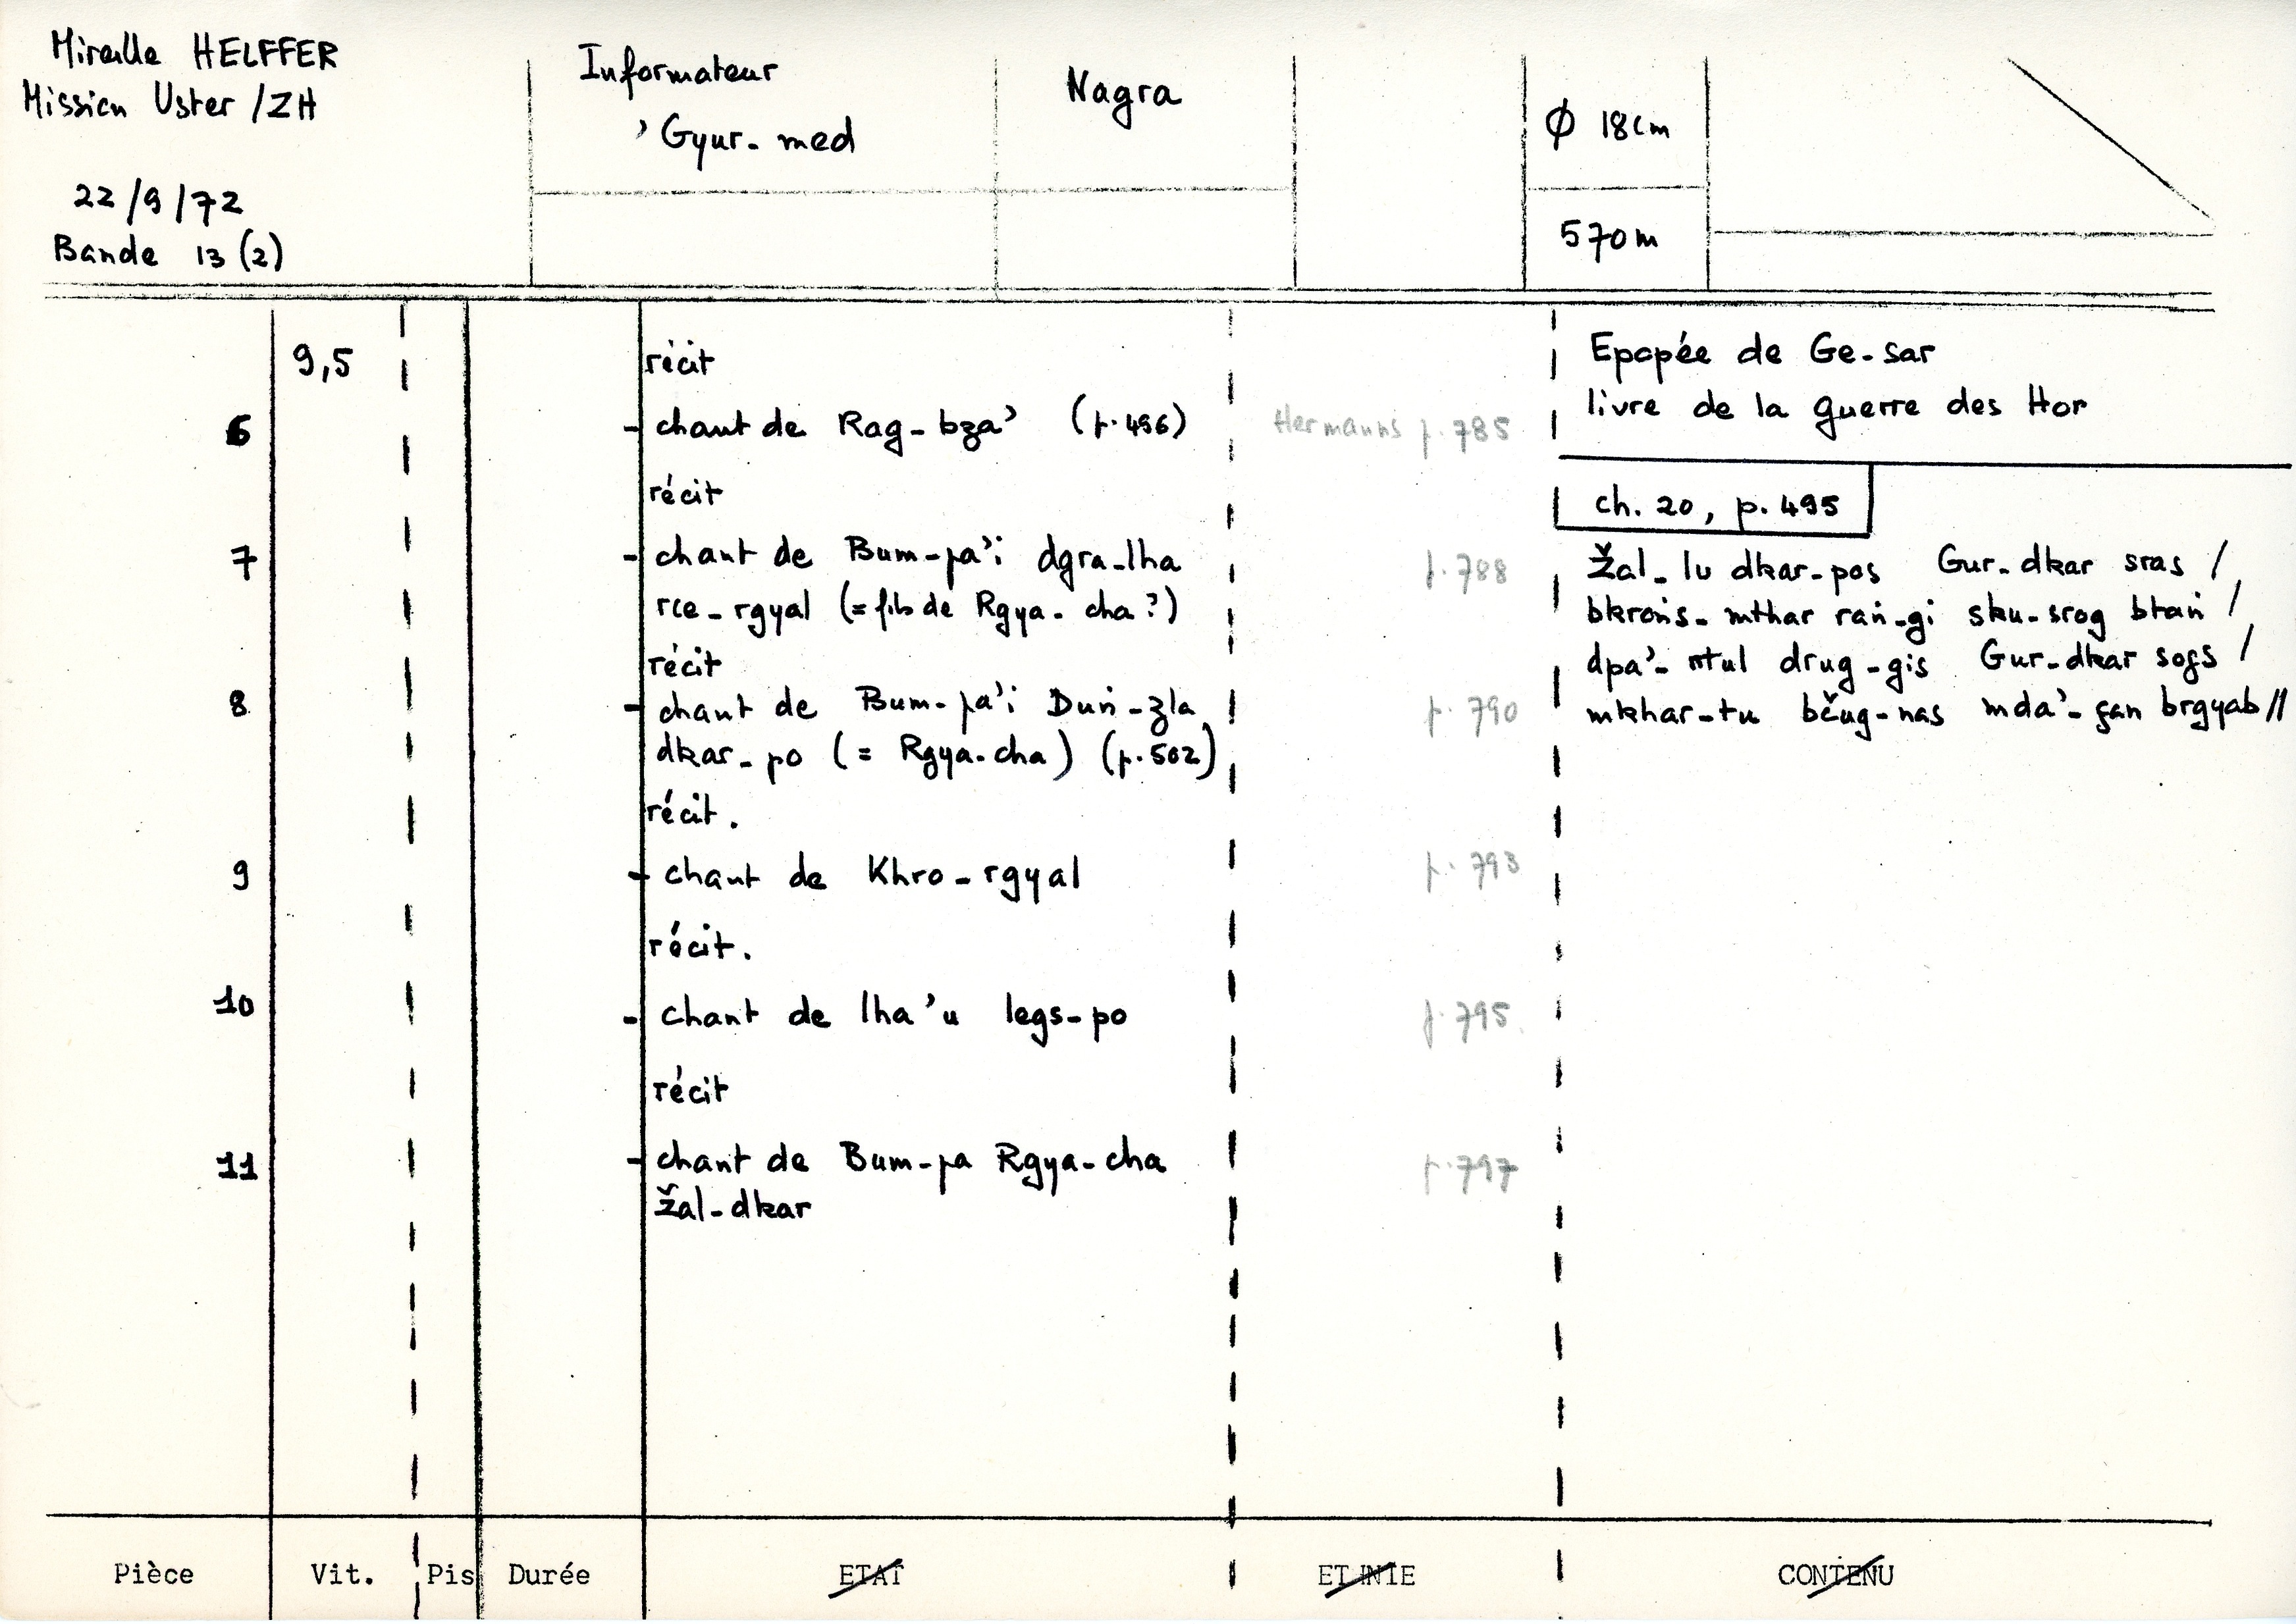 Mireille HELFFER
Mission Uster /ZH
22/9/72
Bande 13 (2)
Informateur
'Gyur-med
Nagra
Ø 18cm
570m
9,5
récit
6 - chant de Rag-bza' (p.496) Hermanns p.785
récit
7 - chant de Bum-pa'i dgra-lha p.788
rce-rgyal (= fils de Rgya-cha ?)
récit
8 - chant de Bum-pa'i Duṅ-zla p.790
dkar-po (= Rgya-cha) (p.502)
récit.
9 - chant de Khro-rgyal p.793
récit.
10 - chant de lha'u legs-po p.795
récit
11 - chant de Bum-pa Rgya-cha p.797
žal-dkar
Epopée de Ge-sar
livre de la guerre des Hor
ch. 20, p. 495
Žal-lu dkar-pos Gur-dkar sras /
bkroṅs-mthar raṅ-gi sku-srog btaṅ /
dpa'-rtul drug-gis Gur-dkar sogs /
mkhar-tu bčug-nas mda'-gan brgyab //
Pièce Vit. Pis Durée ETAT ETHNIE CONTENU